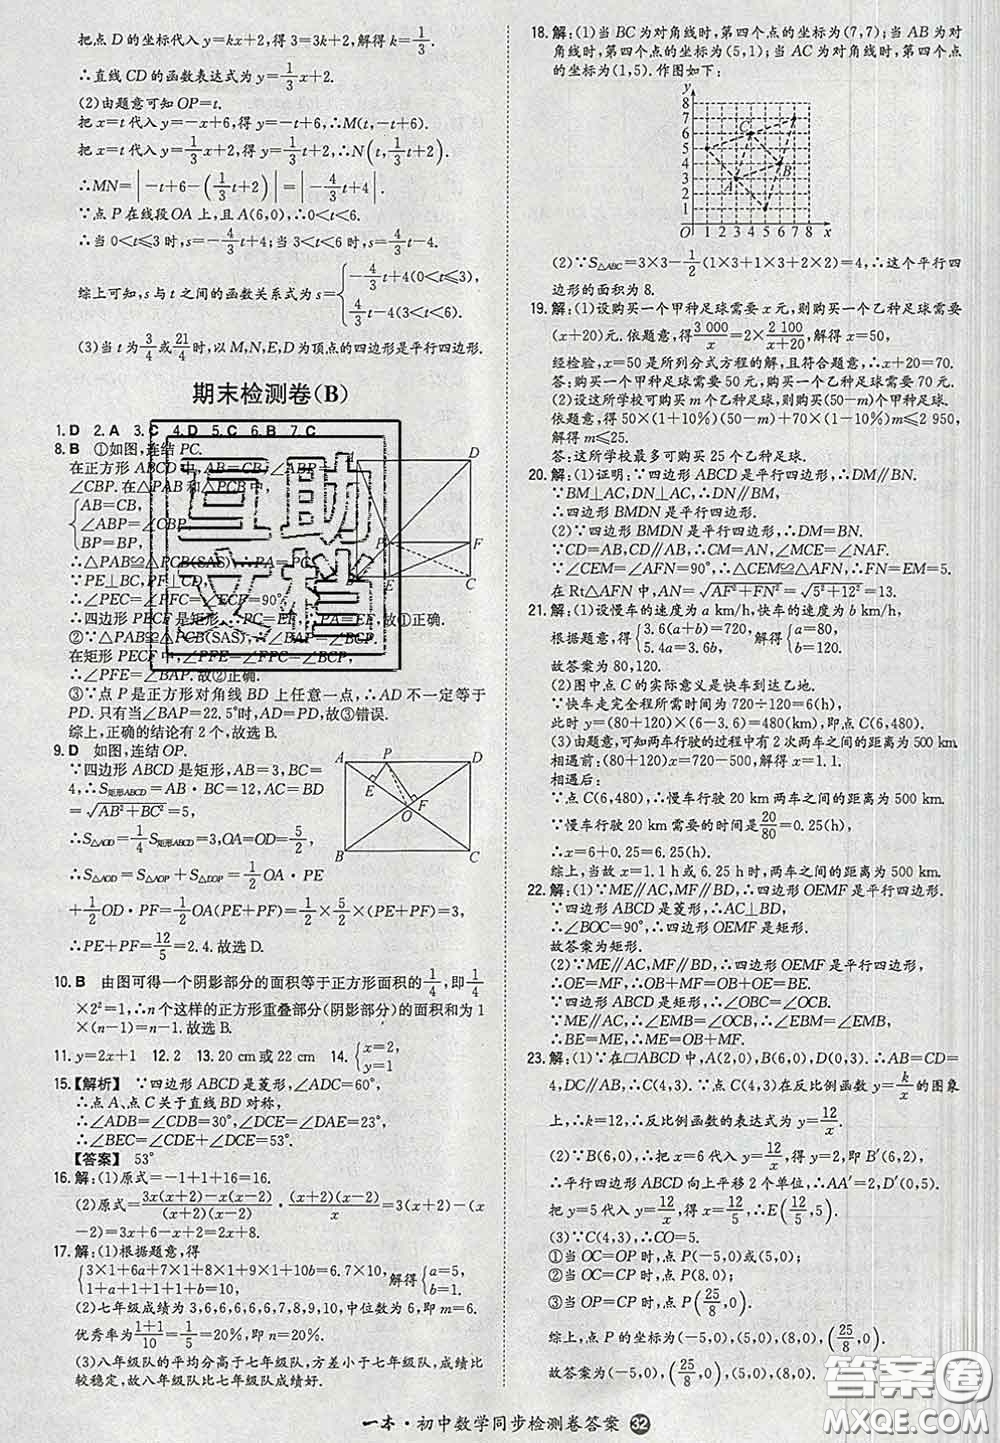 把点 D 的坐标代入 y=kx+2,得 3=3k+2,解得 k=1/3.
∴直线 CD 的函数表达式为 y=1/3x+2.
(2)由题意可知 OP=t.
把 x=t 代入 y=-x+6,得 y=-t+6,∴M(t,-t+6).
把 x=t 代入 y=1/3x+2,得 y=1/3t+2,∴N(t,1/3t+2).
∴MN=|-t+6-(1/3t+2)|=|-4/3t+4|.
∵点 P 在线段 OA 上,且 A(6,0),∴0<t<6.
∴当 0<t≤3 时,s=-4/3t+4;当 3<t<6 时,s=4/3t-4.
综上可知,s 与 t 之间的函数关系式为 s={-4/3t+4(0<t≤3),
4/3t-4(3<t<6).
(3)当 t 为 3/4 或 21/4 时,以 M,N,E,D 为顶点的四边形是平行四边形.
期末检测卷(B)
1. D 2. A 3. C 4. D 5. C 6. B 7. C
8. B ①如图,连结 PC.
在正方形 ABCD 中,AB=CB,∠ABP=
∠CBP. 在△PAB 和△PCB 中,
{AB=CB,
∠ABP=∠CBP,
BP=BP,
∴△PAB≌△PCB(SAS),∴PA=PC.
∵PE⊥BC,PF⊥CD,
∴∠PEC=∠PFC=∠ECF=90°,
∴四边形 PECF 是矩形,∴PC=EF,∴PA=EF,故①正确.
②∵△PAB≌△PCB(SAS),∴∠BAP=∠BCP.
在矩形 PECF 中,∠PFE=∠FPC=∠BCP,
∴∠PFE=∠BAP. 故②正确.
③∵点 P 是正方形对角线 BD 上任意一点,∴AD 不一定等于
PD. 只有当∠BAP=22.5°时,AD=PD,故③错误.
综上,正确的结论有 2 个,故选 B.
9. D 如图,连结 OP.
∵四边形 ABCD 是矩形,AB=3,BC=
4,∴S矩形ABCD=AB·BC=12,AC=BD
=√(AB²+BC²)=5,
∴S△AOD=1/4S矩形ABCD=3,OA=OD=5/2,
∴S△AOD=S△AOP+S△DOP=1/2OA·PE
+1/2OD·PF=1/2OA(PE+PF)=1/2×5/2×(PE+PF)=3,
∴PE+PF=12/5=2.4.故选 D.
10. B 由图可得一个阴影部分的面积等于正方形面积的1/4,即1/4
×2²=1,∴n 个这样的正方形重叠部分(阴影部分)的面积和为 1
×(n-1)=n-1.故选 B.
11. y=2x+1 12. 2 13. 20 cm 或 22 cm 14. {x=2,
y=1
15.【解析】 ∵四边形 ABCD 是菱形,∠ADC=60°,
∴点 A、点 C 关于直线 BD 对称,
∴∠ADB=∠CDB=30°,∠DCE=∠DAE=23°,
∴∠BEC=∠CDE+∠DCE=53°.
【答案】 53°
16. 解:(1)原式=-1+1+16=16.
(2)原式=3x(x+2)-x(x-2)/(x+2)(x-2)·(x+2)(x-2)/x=3(x+2)-(x
-2)=3x+6-x+2=2x+8.
17. 解:(1)根据题意,得
{3×1+6a+7×1+8×1+9×1+10b=6.7×10, 解得{a=5,
1+a+1+1+1+b=10, b=1.
(2)七年级成绩为 3,6,6,6,6,6,7,8,9,10,中位数为 6,即 m=6.
优秀率为 1+1/10=1/5=20%,即 n=20%.
(3)八年级队的平均分高于七年级队、方差小于七年级队,成绩比
较稳定,故八年级队比七年级队成绩好.
18. 解:(1)当 BC 为对角线时,第四个点的坐标为(7,7);当 AB 为对
角线时,第四个点的坐标为(5,1);当 AC 为对角线时,第四个点
的坐标为(1,5). 作图如下:
(2)∵S△ABC=3×3-1/2(1×3+1×3+2×2)=4,∴这个平行四
边形的面积为 8.
19. 解:(1)设购买一个甲种足球需要 x 元,则购买一个乙种足球需要
(x+20)元. 依题意,得 3 000/x=2×2 100/x+20,解得 x=50,
经检验,x=50 是所列分式方程的解,且符合题意,∴x+20=70.
答:购买一个甲种足球需要 50 元,购买一个乙种足球需要 70 元.
(2)设这所学校可购买 m 个乙种足球,则购买(50-m)个甲种足球.
依题意,得 50×(1+10%)(50-m)+70×(1-10%)m≤2 950,
解得 m≤25.
答:这所学校最多可购买 25 个乙种足球.
20. 解:(1)证明:∵四边形 ABCD 是平行四边形,∴DM∥BN.
∵BM⊥AC,DN⊥AC,∴DN∥BM,
∴四边形 BMDN 是平行四边形.
(2)∵四边形 BMDN 是平行四边形,∴DM=BN.
∵CD=AB,CD∥AB,∴CM=AN,∠MCE=∠NAF.
∵∠CEM=∠AFN=90°,∴△CEM≌△AFN,∴FN=EM=5.
在 Rt△AFN 中,AN=√(AF²+FN²)=√(12²+5²)=13.
21. 解:(1)设慢车的速度为 a km/h,快车的速度为 b km/h,
根据题意,得{3.6(a+b)=720, 解得{a=80,
5.4a=3.6b, b=120.
故答案为 80,120.
(2)图中点 C 的实际意义是快车到达乙地.
∵快车走完全程所需时间为 720÷120=6(h),
此时 y=(80+120)×(6-3.6)=480(km),即点 C(6,480).
(3)由题意,可知两车行驶的过程中有 2 次两车之间的距离为 500 km.
相遇前:(80+120)x=720-500,解得 x=1.1.
相遇后:
∵点 C(6,480),∴慢车行驶 20 km 两车之间的距离为 500 km.
∵慢车行驶 20 km 需要的时间是 20/80=0.25(h),
∴x=6+0.25=6.25(h).
综上,当 x=1.1 h 或 6.25 h 时,两车之间的距离为 500 km.
22. 解:(1)∵ME∥AC,MF∥BD,∴四边形 OEMF 是平行四边形.
∵四边形 ABCD 是菱形,∴AC⊥BD,
∴∠BOC=90°,∴四边形 OEMF 是矩形.
故答案为矩形.
(2)∵ME∥AC,MF∥BD,∴四边形 OEMF 是平行四边形,
∴OE=MF,∴OB+MF=OB+OE=BE.
∵四边形 ABCD 是矩形,∴OB=OC,∴∠EBM=∠OCB.
∵ME∥AC,∴∠EMB=∠OCB,
∴∠EMB=∠EBM,∴BE=ME,∴OB+MF=ME.
23. 解:(1)∵在□ABCD 中,A(2,0),B(6,0),D(0,3),∴AB=CD=
4,DC∥AB,∴C(4,3). ∵点 C(4,3)在反比例函数 y=k/x 的图象
上,∴k=12,∴反比例函数的表达式为 y=12/x.
(2)∵B(6,0),∴把 x=6 代入 y=12/x,得 y=2,即 B′(6,2),
∴平行四边形 ABCD 向上平移 2 个单位,∴AA′=2,D′(0,5).
把 y=5 代入 y=12/x,得 5=12/x,∴x=12/5,∴E(12/5,5).
(3)∵C(4,3),∴CO=5.
①当 CO=OP 时,点 P(-5,0),(5,0);
②当 OC=CP 时,点 P(8,0);
③当 OP=CP 时,点 P(25/8,0).
综上,点 P 的坐标为(-5,0),(5,0),(8,0),(25/8,0).
故答案为(-5,0),(5,0),(8,0),(25/8,0).
一本·初中数学同步检测卷答案 32
互助
文档
答案圈